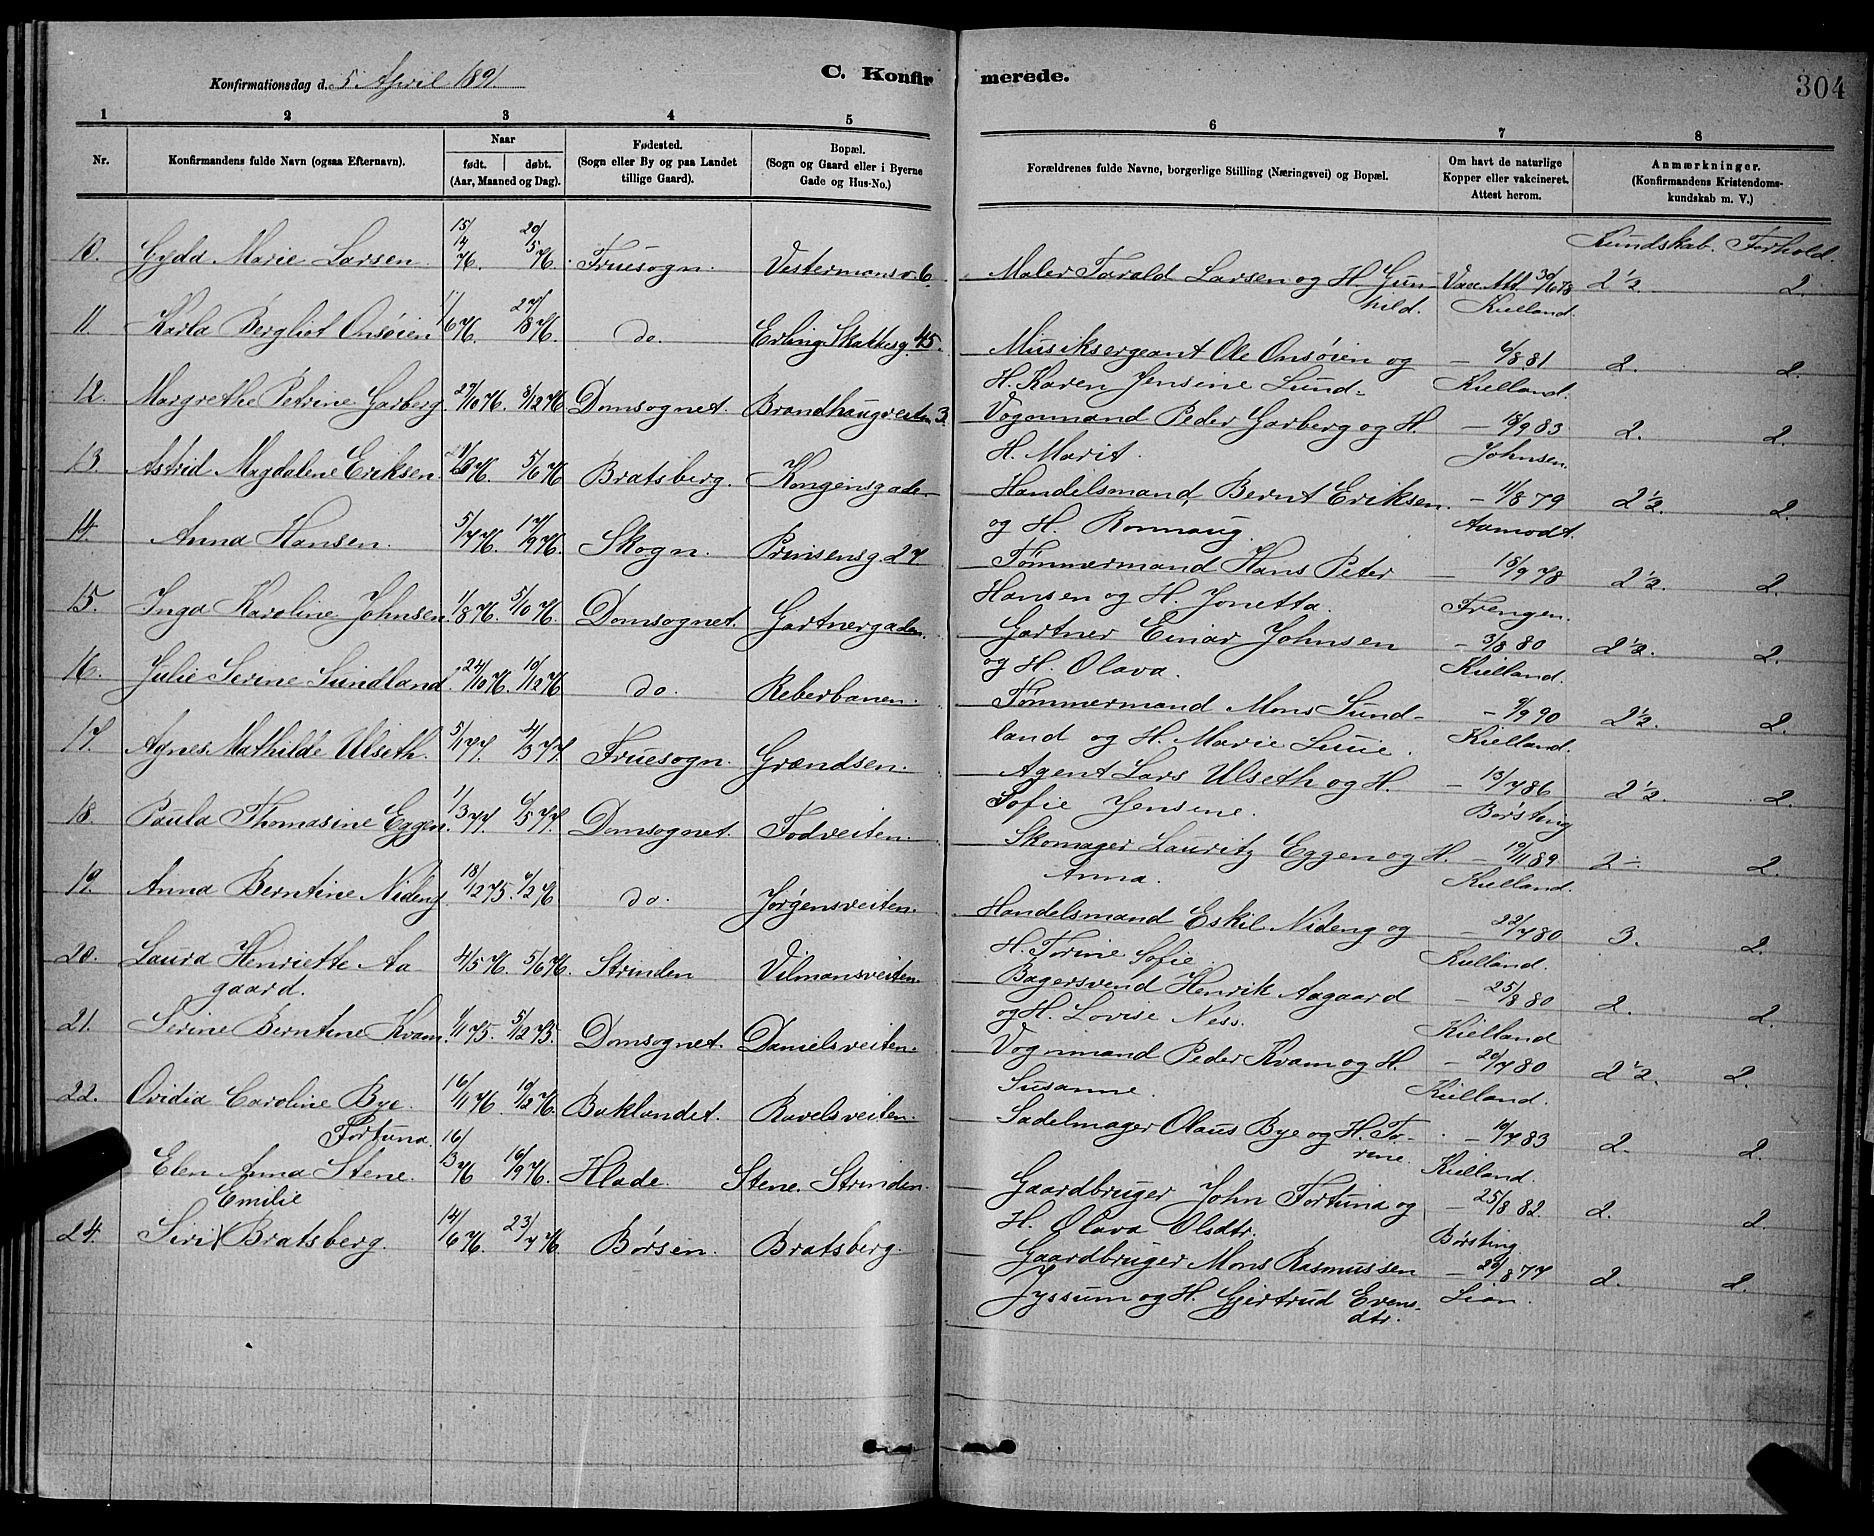 Konfirmationsdag d. 5 April 1891.
C. Konfirmerede.
304
1 2 3 4 5 6 7 8
Nr.
Konfirmandens fulde Navn (ogsaa Efternavn).
Naar
født. døbt.
(Aar, Maaned og Dag).
Fødested.
(Sogn eller By og paa Landet
tillige Gaard).
Bopæl.
(Sogn og Gaard eller i Byerne
Gade og Hus-No.)
Forældrenes fulde Navne, borgerlige Stilling (Næringsvei) og Bopæl.
Om havt de naturlige
Kopper eller vakcineret.
Attest herom.
Anmærkninger.
(Konfirmandens Kristendoms-
kundskab m. V.)
Kundskab. Forhold.
10. Gyda Marie Larsen 15/4 76. 20/5 76. Fruesogn. Vestermansv. 6. Maler Tarald Larsen og H. Gun Vacc. Att. 30/6 78 2 1/2. 2.
hild. Kielland.
11. Karla Bergliot Onsøien 11/6 76. 27/8 76. do. Erling Skakkesg. 45. Musiksergeant Ole Onsøien og – 6/8 81 2. 2.
H. Karen Jensine Lund. Kielland.
12. Margrethe Petrine Garberg. 27/10 76. 3/12 76. Domsognet. Brandhaugveiten 3. Vognmand Peder Garberg og H. – 18/9 83 2. 2.
H. Marit. Johnsen.
13. Astrid Magdalene Eriksen. 76. 5/6 76 Bratsberg. Kongensgade. Handelsmand, Bernt Eriksen. – 11/8 79 2 1/2. 2.
og H. Ronnaug. Aamodt.
14. Anna Hansen. 5/7 76. 17/9 76. Skogn. Prinsensg. 27. Tømmermand Hans Peter – 18/9 78 2 1/2. 2.
Hansen og H. Jonetta. Frengen.
15. Inga Karoline Johnsen. 1/8 76. 5/10 76. Domsognet. Gartnergaden. Gartner Einar Johnsen – 3/8 80 2 1/2. 2.
og H. Olava. Kielland.
16. Julie Serine Sundland. 24/10 76. 10/12 76. do. Reberbanen. Tømmermand Mons Sund- – 9/9 90 2 1/2. 2.
land og H. Marie Lucie. Kielland.
17. Agnes Mathilde Ulseth. 5/1 77. 4/3 77. Fruesogn. Grændsen. Agent Lars Ulseth og H. – 13/7 86 2 1/2. 2.
Sofie Jensine. Børsting
18. Paula Thomasine Eggen. 1/3 77. 6/5 77. Domsognet. Todveiten. Skomager Lauritz Eggen og H. – 19/11 89 2 ÷. 2.
Anna. Kielland.
19. Anna Berntine Nideng 18/12 75. 6/2 76 do. Jørgensveiten. Handelsmand Eskil Nideng og – 22/7 80 3. 2.
H. Torine Sofie. Kielland.
20. Laura Henriette Aa 4/5 76. 5/6 76. Strinden Vilmansveiten. Bagersvend Henrik Aagaard – 25/8 80 2. 2.
gaard. og H. Lovise Ness. Kielland
21. Serine Berntine Kvam. 1/11 75. 5/12 75. Domsognet. Danielsveiten. Vognmand Peder Kvam og H. – 20/7 80 2 1/2. 2.
Susanne. Kielland.
22. Ovidia Caroline Bye. 16/11 76. 10/12 76. Baklandet. Ravelsveiten. Sadelmager Olaus Bye og H. To- – 10/7 83 2. 2.
rine. Kielland.
Fortuna.
Elen Anna Stene. 16/3 76 10/9 76. Hlade. Stene. Strinden. Gaardbruger John Fortuna og – 25/8 82. 2. 2.
H. Olava Olsdtr. Børsting.
Emilie
24. Siri Bratsberg. 14/6 76. 23/7 76. Børsen. Bratsberg. Gaardbruger Mons Rasmussen – 20/8 77 2. 2.
Jyssum og H. Gjertrud Evens- Lian.
dtr.